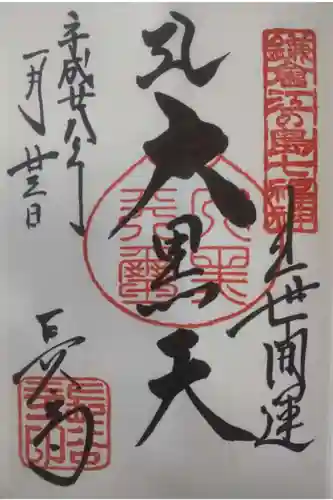 鎌倉江の島七福神
出世開運
大黒天
平成廿八年
一月廿三日
長谷寺